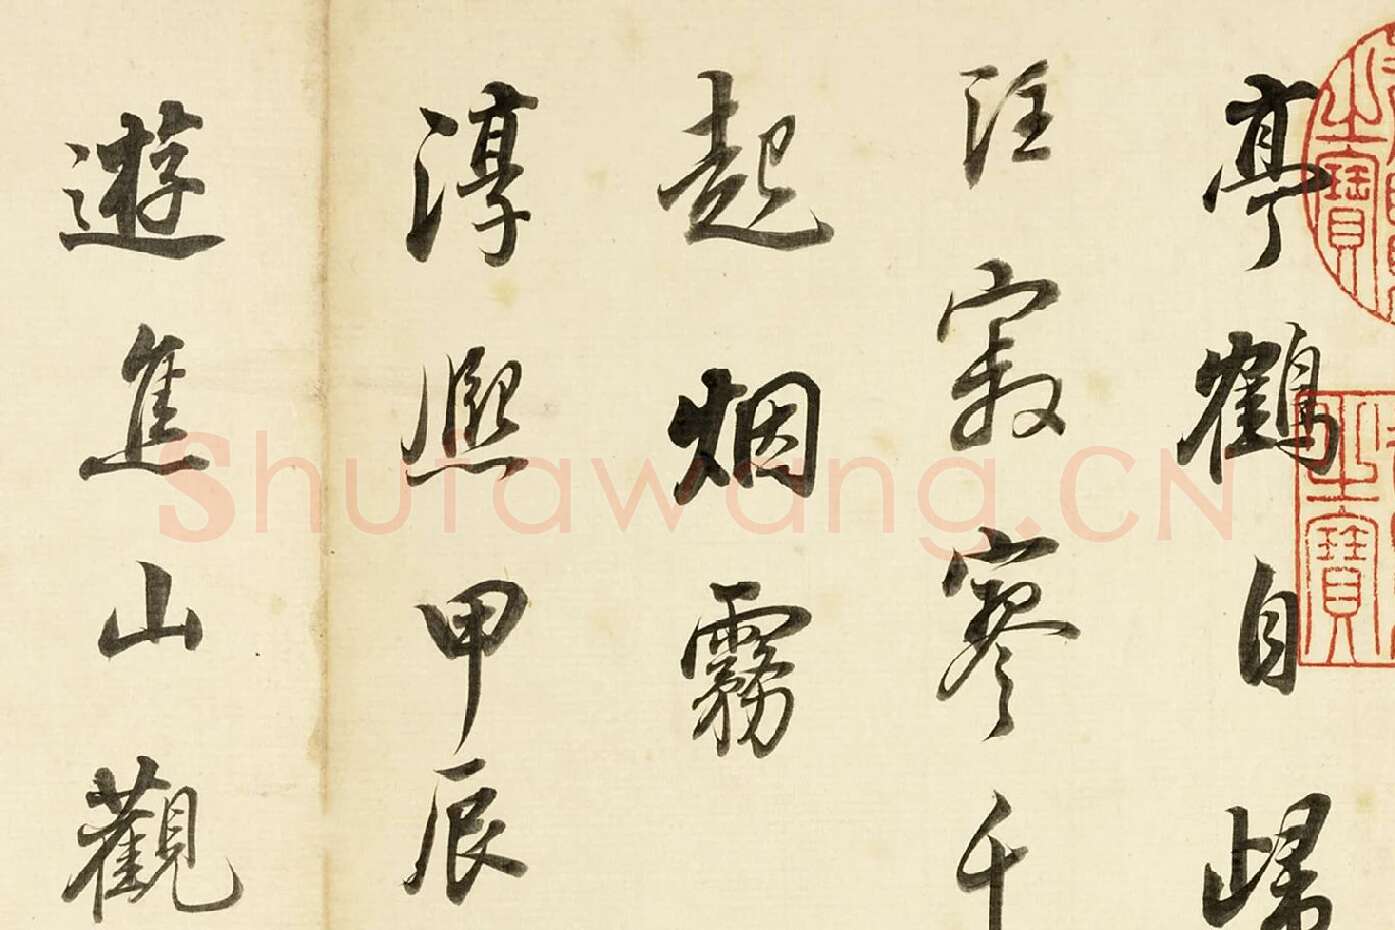 亭鶴自歸
汪寂寥千
起烟霧
淳熙甲辰
遊焦山觀
之寶
之寶
Shufawang.CN